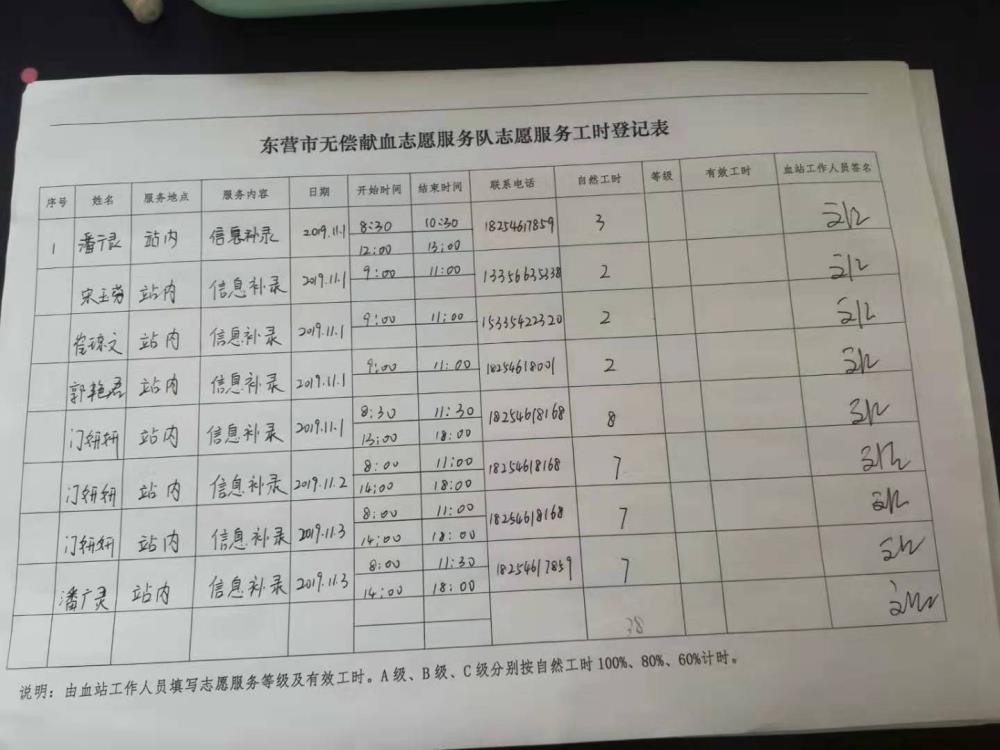 东营市无偿献血志愿服务队志愿服务工时登记表
序号 姓名 服务地点 服务内容 日期 开始时间 结束时间 联系电话 自然工时 等级 有效工时 血站工作人员签名
1 潘广灵 站内 信息补录 2019.11.1 8:30 10:30 18254617859 3
12:00 13:00
宋玉芬 站内 信息补录 2019.11.1 9:00 11:00 13356635338 2
崔琼文 站内 信息补录 2019.11.1 9:00 11:00 15335422320 2
郭艳君 站内 信息补录 2019.11.1 9:00 11:00 18254618001 2
门妍妍 站内 信息补录 2019.11.1 8:30 11:30 18254618168 8
13:00 18:00
门妍妍 站内 信息补录 2019.11.2 8:00 11:00 18254618168 7
14:00 18:00
门妍妍 站内 信息补录 2019.11.3 8:00 11:00 18254618168 7
14:00 18:00
潘广灵 站内 信息补录 2019.11.3 8:00 11:30 18254617859 7
14:00 18:00
38
说明：由血站工作人员填写志愿服务等级及有效工时。A级、B级、C级分别按自然工时100%、80%、60%计时。